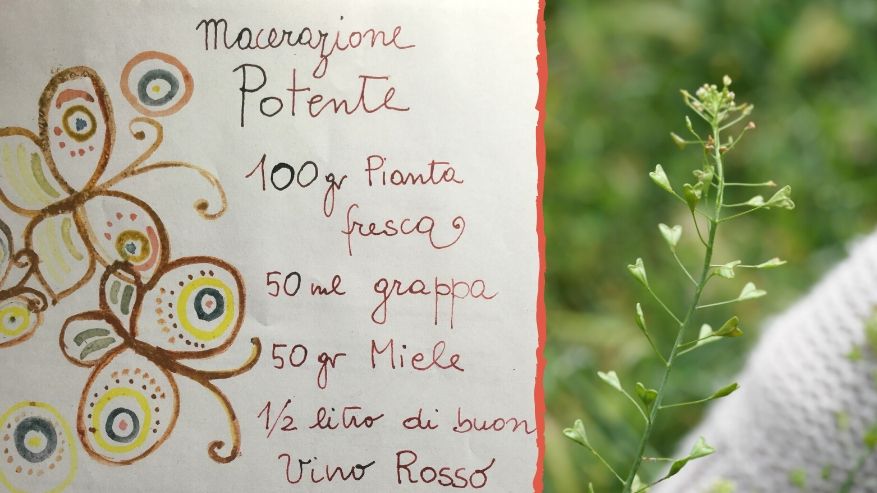 Macerazione
Potente
100gr Pianta
fresca
50 ml grappa
50 gr Miele
1/2 litro di buon
Vino Rosso